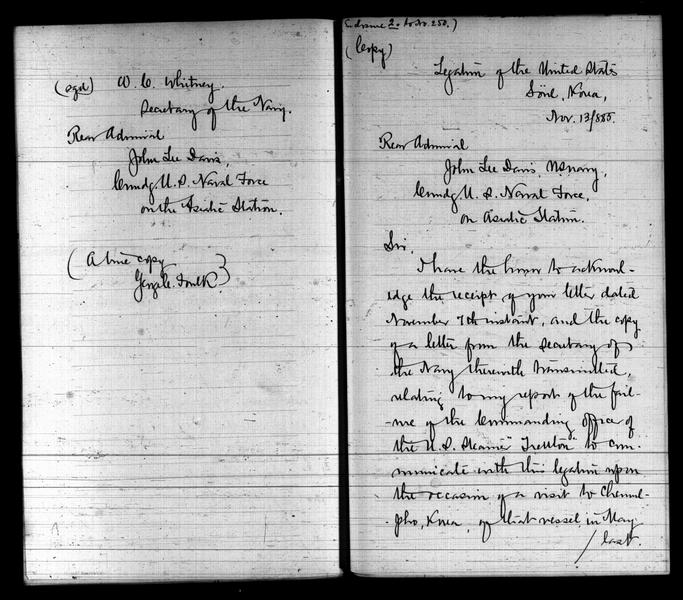 (sgd) W. C. Whitney.
Secretary of the Navy.
Rear Admiral
John Lee Davis,
Comdg U. S. Naval Force
on the Asiatic Station.
(A true copy
George C. Foulk)
Enclosure 2. to No. 250.)
(Copy)
Legation of the United States
Söul, Korea,
Nov. 13/885.
Rear Admiral
John Lee Davis, U.S. Navy,
Comdg U. S. Naval Force,
on Asiatic Station.
Sir,
I have the honor to acknowl-
edge the receipt of your letter dated
November 7th instant, and the copy
of a letter from the Secretary of
the Navy therewith transmitted,
relating to my report of the fail-
-ure of the Commanding officer of
the U. S. Steamer "Trenton" to com-
municate with this legation upon
the occasion of a visit to Chemul-
-pho, Korea, of that vessel in May
/ last.